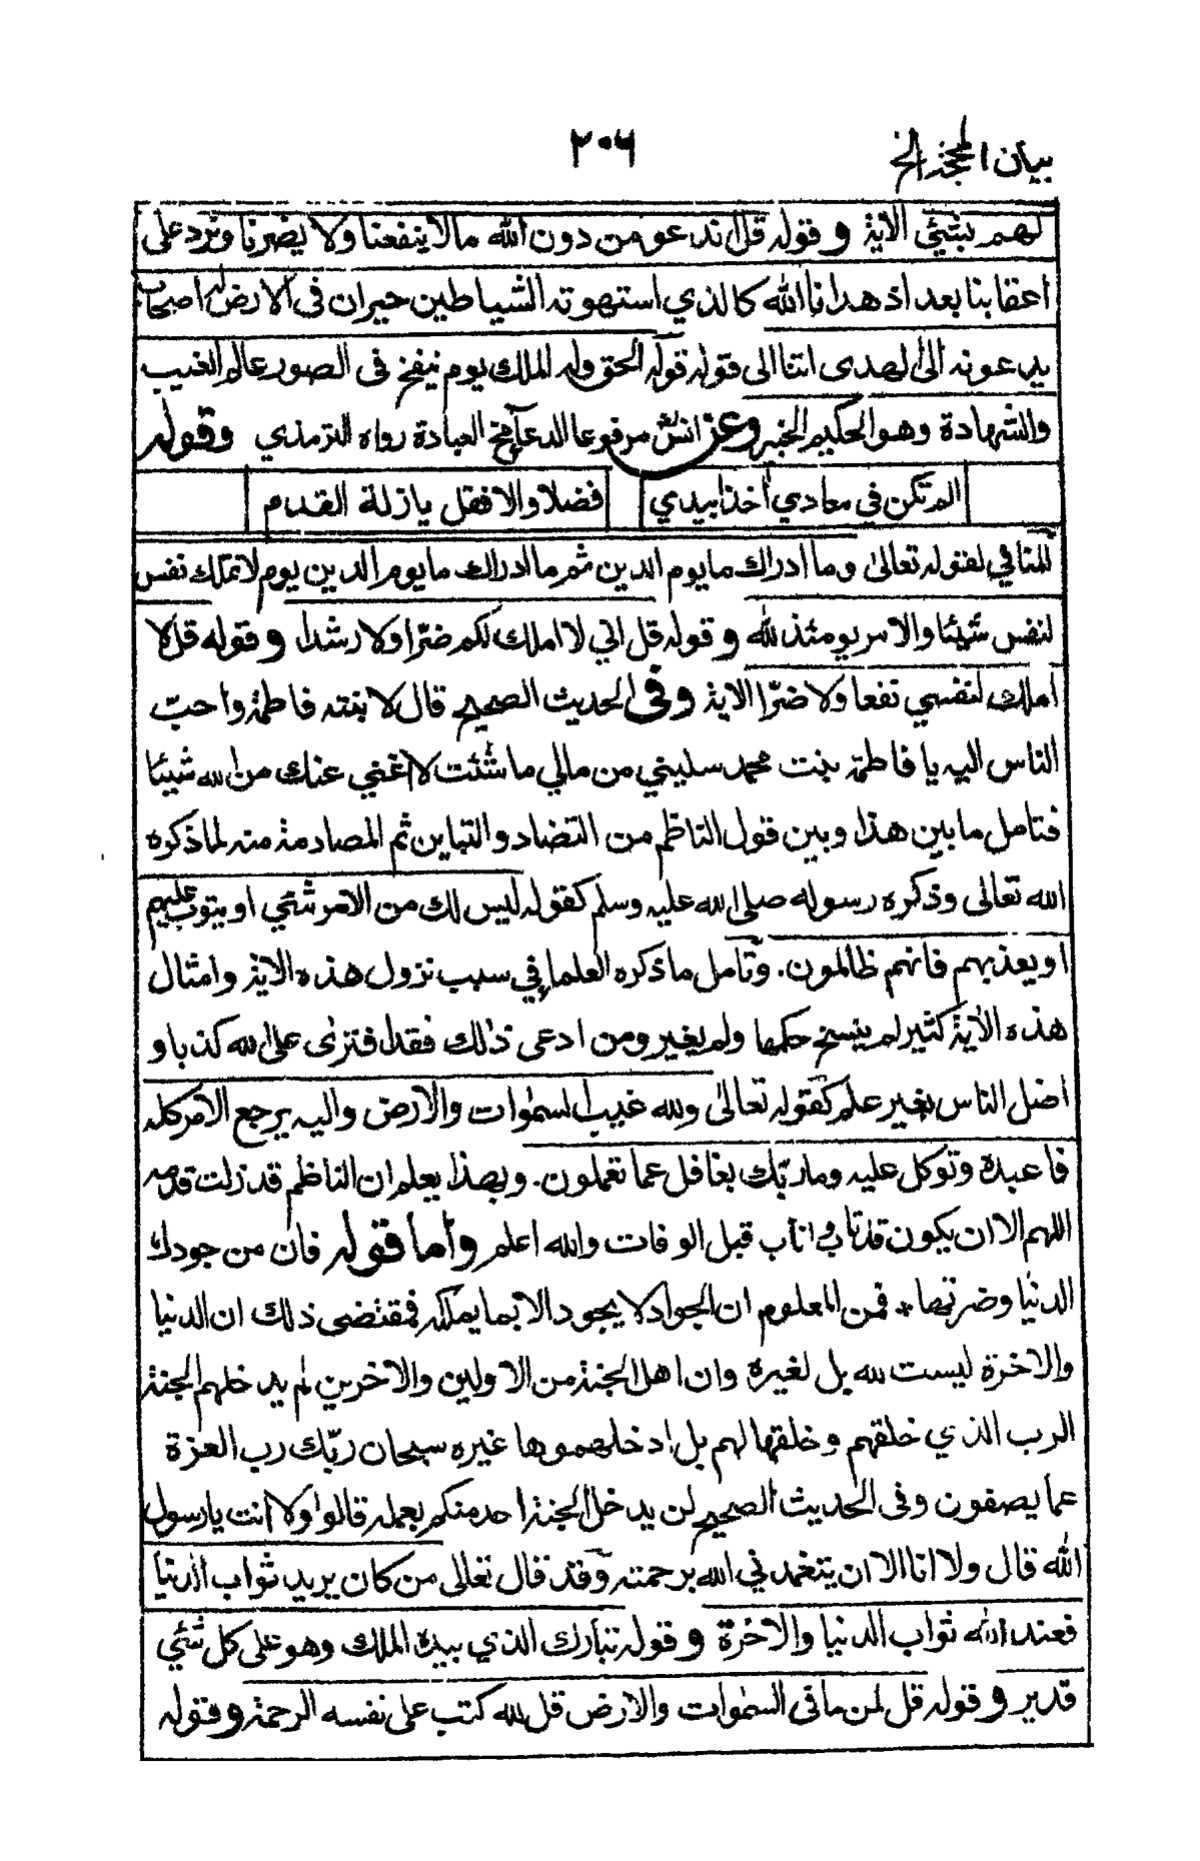 بيان المحجة الخ
٢٠٦
لهم بشئ الاية وقوله قل اندعو من دون الله مالا ينفعنا ولا يضرنا ونرد على
اعقابنا بعد اذ هدانا الله كالذي استهوته الشياطين حيران فى الارض له اصحاب
يدعونه الى الهدى ائتنا الى قوله قوله الحق وله الملك يوم ينفخ فى الصور عالم الغيب
والشهادة وهو الحكيم الخبير وعن انس مرفوعا الدعآ مخ العبادة رواه الترمذي وقوله
ان لم تكن في معادي اخذا بيدي فضلا والا فقل يا زلة القدم
المنافي لقوله تعالى وما ادراك ما يوم الدين ثم ما ادراك ما يوم الدين يوم لا تملك نفس
لنفس شيئا والامر يومئذ لله وقوله قل اني لا املك لكم ضرّا ولا رشدا وقوله قل لا
املك لنفسي نفعا ولا ضرّا الاية وفى الحديث الصحيح قال لابنته فاطمة واحبّ
الناس اليه يا فاطمة بنت محمد سليني من مالي ما شئت لا اغني عنك من الله شيئا
فتامل ما بين هذا وبين قول الناظم من التضاد والتباين ثم المصادمة منه لما ذكره
الله تعالى وذكره رسوله صلى الله عليه وسلم كقوله ليس لك من الامر شئي او يتوب عليهم
او يعذبهم فانهم ظالمون. وتامل ما ذكره العلماء في سبب نزول هذه الاية وامثال
هذه الأية كثير لم ينسخ حكمها ولم يغير ومن ادعى ذلك فقد افترى على الله كذبا و
اضل الناس بغير علم كقوله تعالى ولله غيب السموات والارض واليه يرجع الامر كله
فاعبده وتوكل عليه وما ربّك بغافل عما تعملون. وبهذا يعلم ان الناظم قد زلت قدمه
اللهم الا ان يكون قد تاب واناب قبل الوفات والله اعلم واما قوله فان من جودك
الدنيا وضرتها* فمن المعلوم ان الجواد لا يجود الا بما يملكه فمقتضى ذلك ان الدنيا
والاخرة ليست لله بل لغيره وان اهل الجنة من الاولين والاخرين لم يدخلهم الجنة
الرب الذي خلقهم وخلقها لهم بل ادخلهموها غيره سبحان ربّك رب العزة
عما يصفون وفى الحديث الصحيح لن يدخل الجنة احد منكم بعمله قالوا ولا انت يا رسول
الله قال ولا انا الا ان يتغمدني الله برحمته وقد قال تعالى من كان يريد ثواب الدنيا
فعند الله ثواب الدنيا والاخرة وقوله تبارك الذي بيده الملك وهو على كل شئي
قدير وقوله قل لمن ما فى السموات والارض قل لله كتب على نفسه الرحمة وقوله